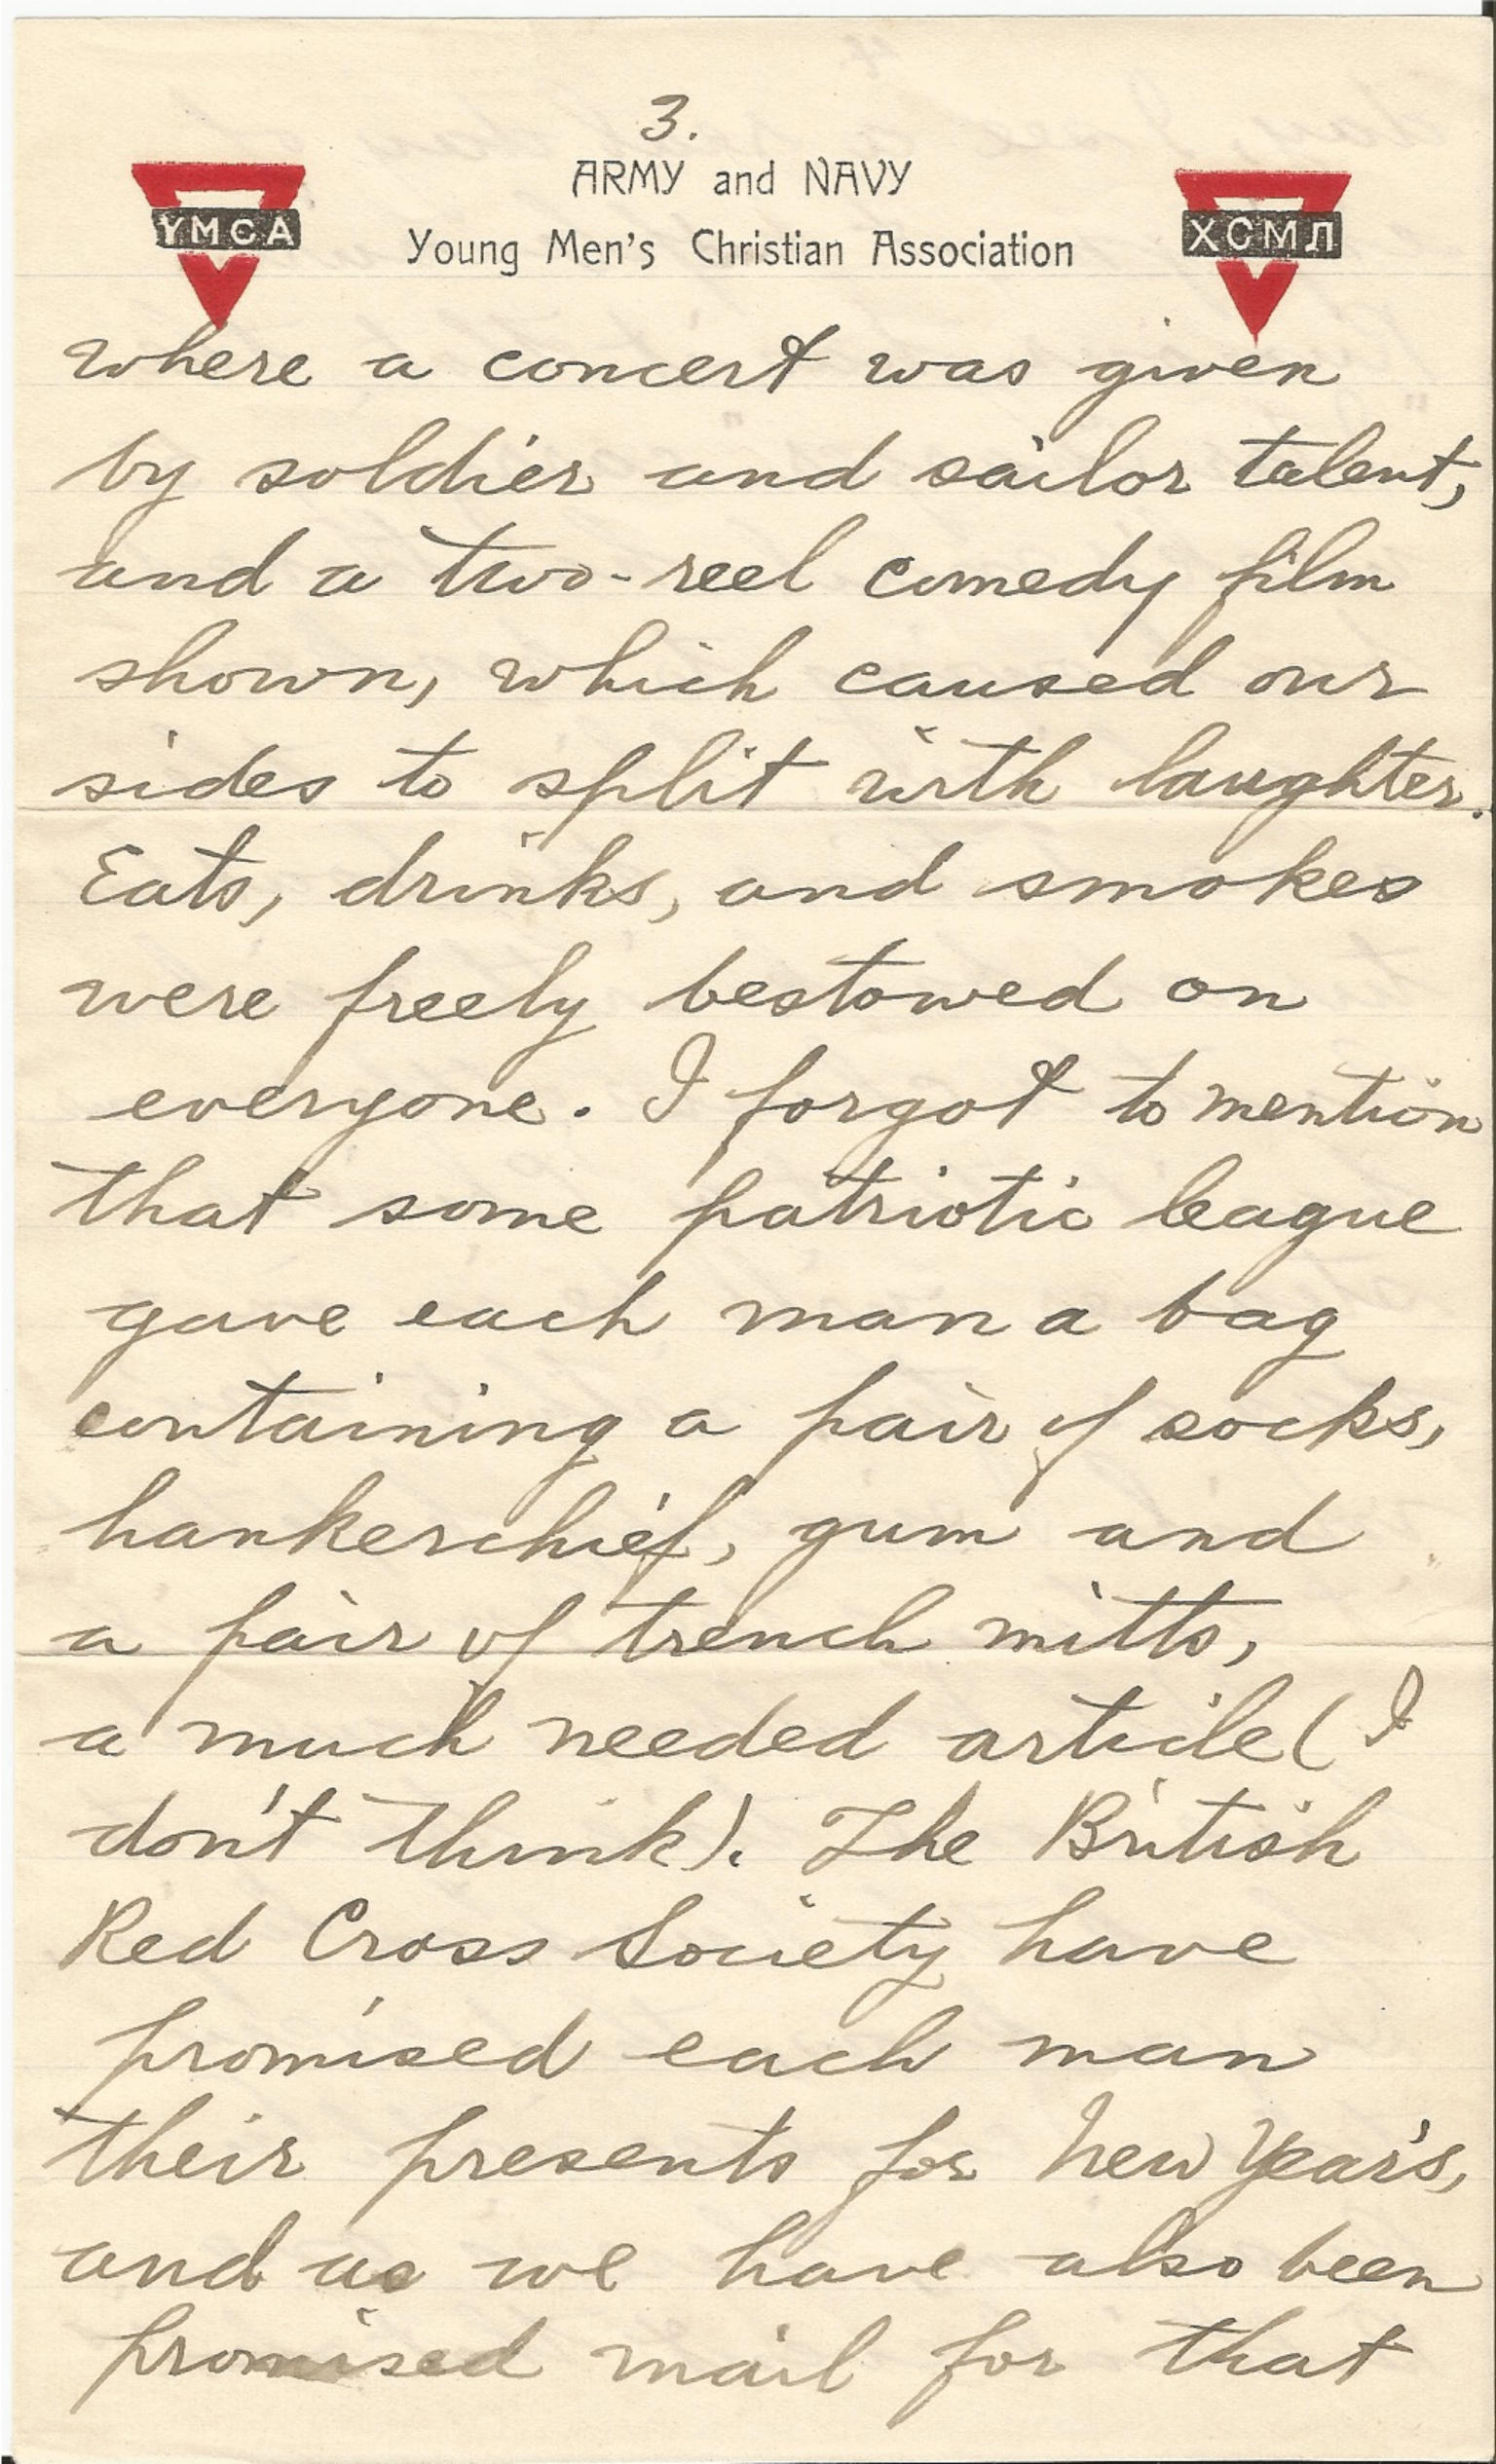 3.
ARMY and NAVY
YMCA
ХСМЛ
Young Men's Christian Association
where a concert was given
by soldier and sailor talent,
and a two-reel comedy film
shown, which caused our
sides to split with laughter.
Eats, drinks, and smokes
were freely bestowed on
everyone. I forgot to mention
that some patriotic league
gave each man a bag
containing a pair of socks,
hankerchief, gum and
a pair of trench mitts,
a much needed article (I
don't think). The British
Red Cross Society have
promised each man
their presents for New Year's,
and as we have also been
promised mail for that